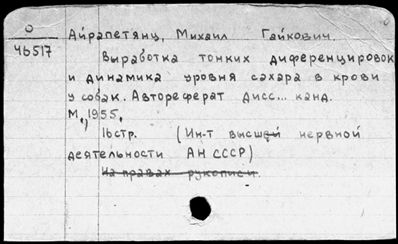 О
46517
Айрапетянц, Михаил Гайкович.
Выработка тонких диференцировок
и динамика уровня сахара в крови
у собак. Автореферат дисс... канд.
М., 1955.
16стр. (Ин-т высшей нервной
деятельности АН СССР)
На правах рукописи.